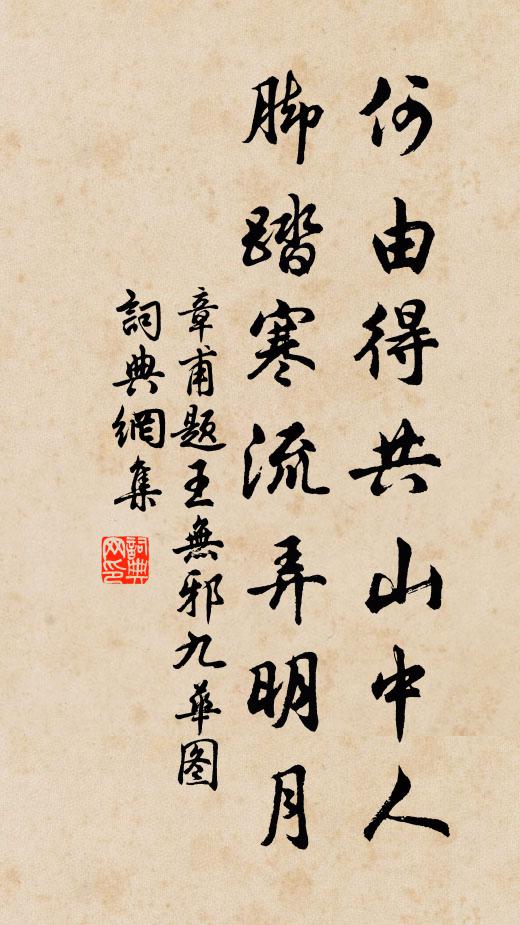 何由得共山中人
脚踏寒流弄明月
章甫题王無邪九華图
詞典網集
詞典网印